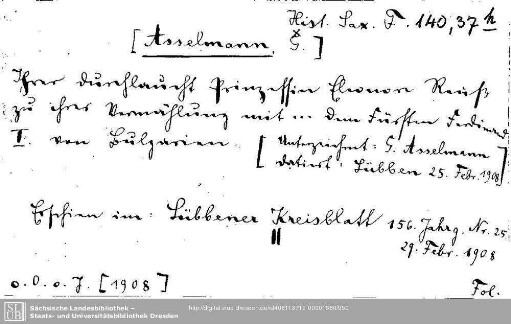 Hist. Sax. F. 140, 37 h
[Asselmann, G.]
Ihrer durchlaucht Prinzessin Eleonore Reuß
zu ihrer Vermählung mit ... dem Fürsten Ferdinand
I. von Bulgarien. [Unterzeichnet: G. Asselmann
datiert: Lübben 25. Febr. 1908]
Erschien im: Lübbener Kreisblatt 156. Jahrg. Nr. 25
29. Febr. 1908
o. O. o. J. [1908] Fol.
SLUB
Sächsische Landesbibliothek –
Staats- und Universitätsbibliothek Dresden